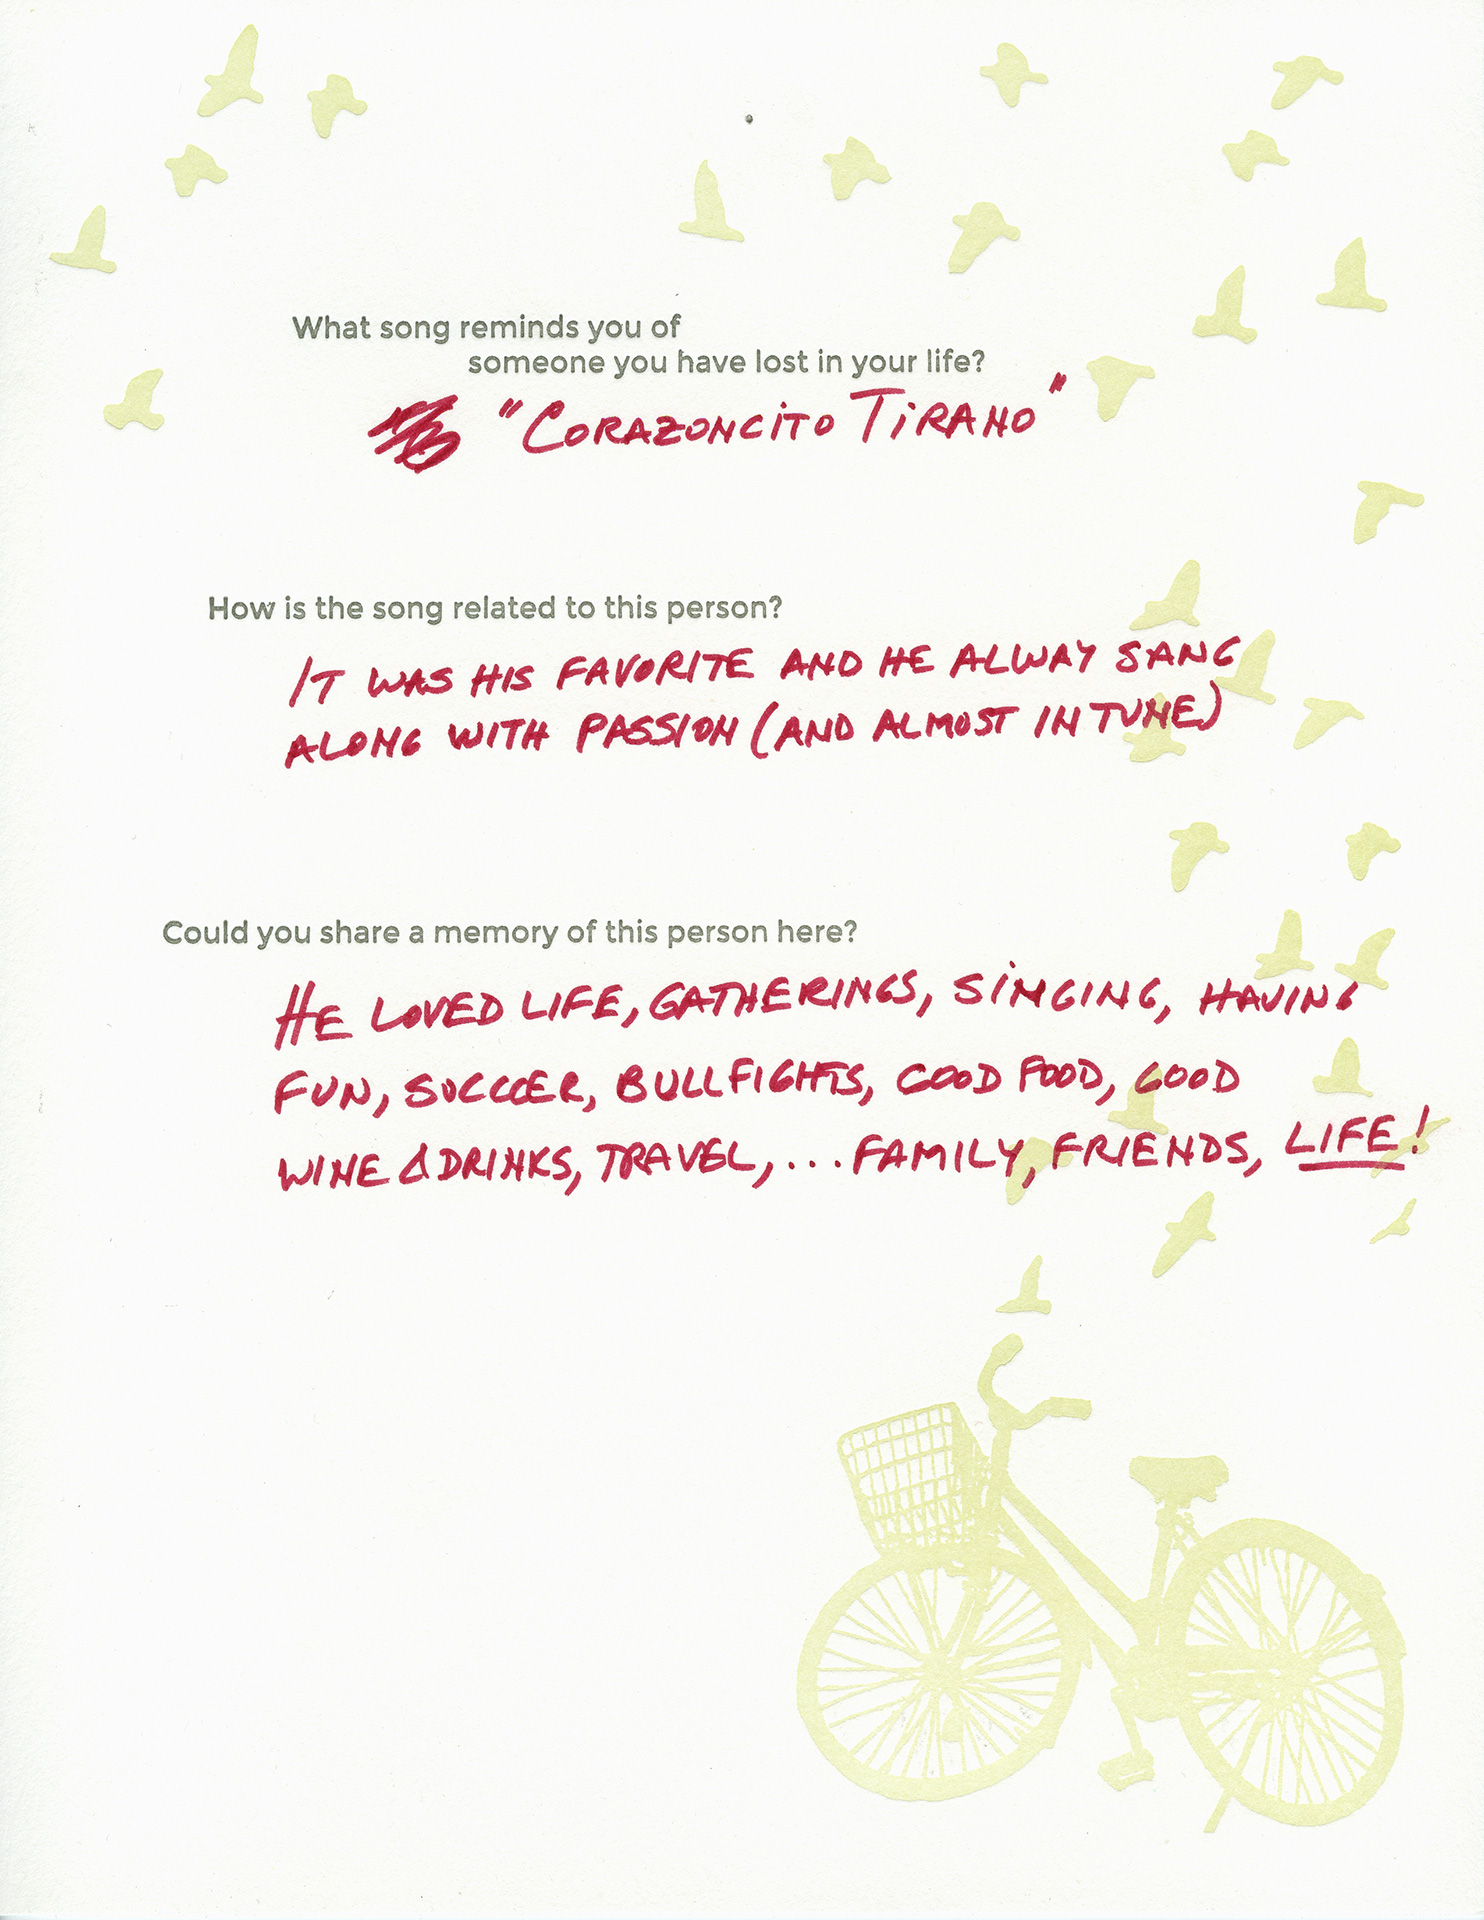 What song reminds you of
someone you have lost in your life?
"CORAZONCITO TIRANO"
How is the song related to this person?
IT WAS HIS FAVORITE AND HE ALWAY SANG
ALONG WITH PASSION (AND ALMOST IN TUNE)
Could you share a memory of this person here?
HE LOVED LIFE, GATHERINGS, SINGING, HAVING
FUN, SOCCER, BULLFIGHTS, GOOD FOOD, GOOD
WINE & DRINKS, TRAVEL, ... FAMILY, FRIENDS, LIFE!